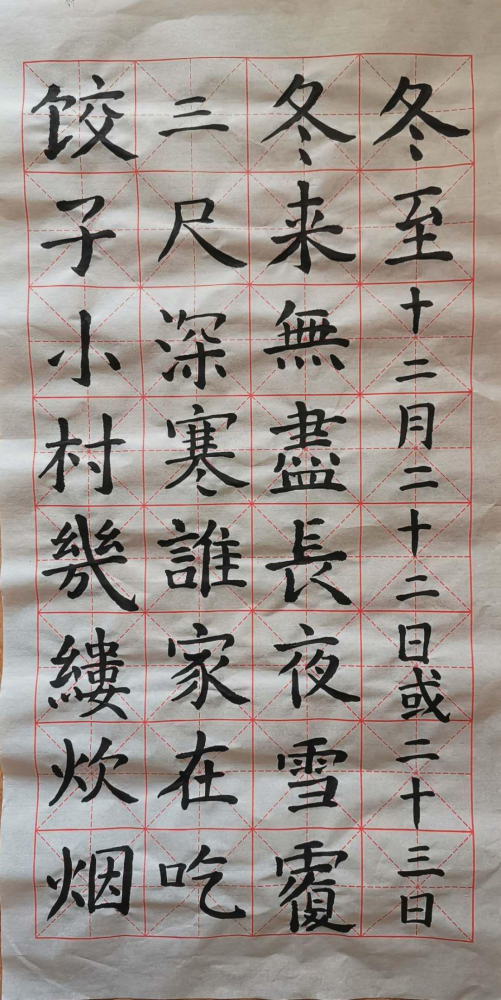 冬至十二月二十二日或二十三日
冬来無盡長夜雪覆
三尺深寒誰家在吃
饺子小村幾縷炊烟